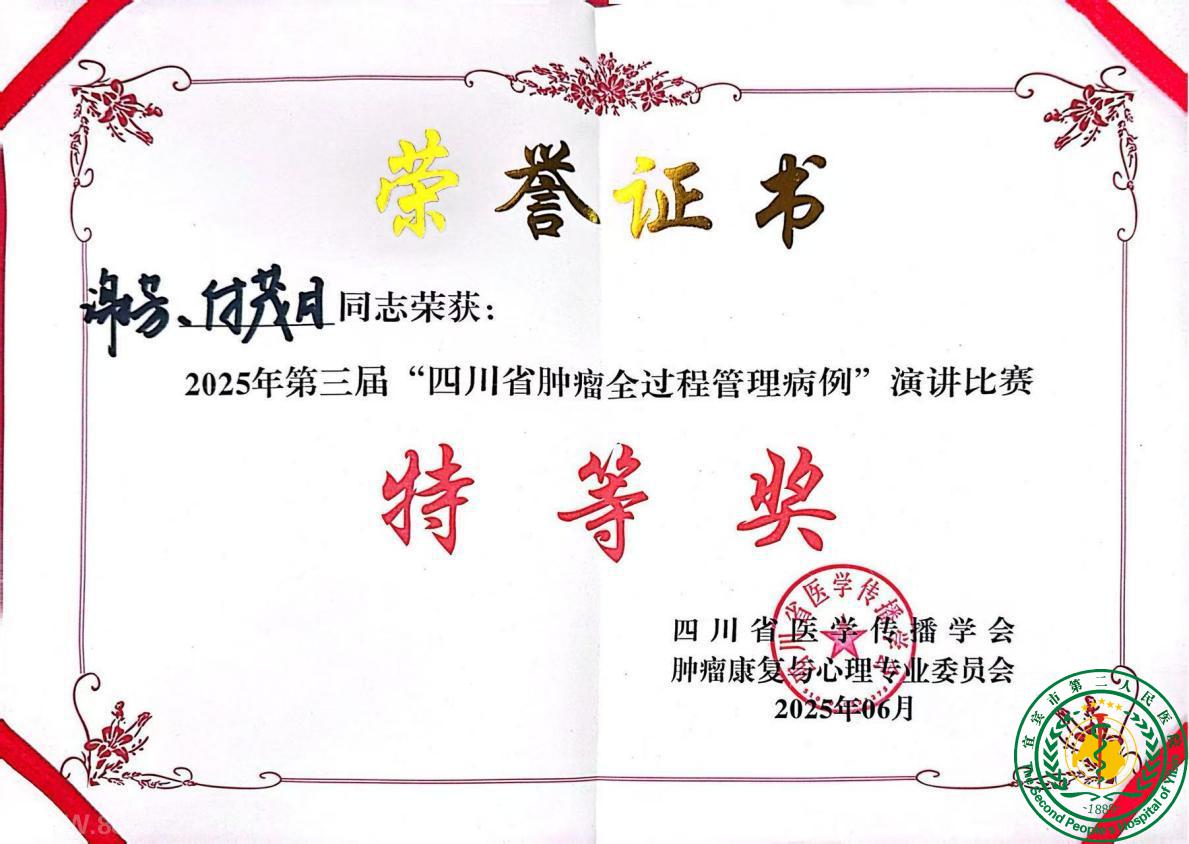 荣誉证书
谢芳、付茂月同志荣获:
2025年第三届“四川省肿瘤全过程管理病例”演讲比赛
特等奖
四川省医学传播学会
四川省医学传播学会
肿瘤康复与心理专业委员会
2025年06月
宜宾市第二人民医院
-1889-
The Second People's Hospital of Yibin